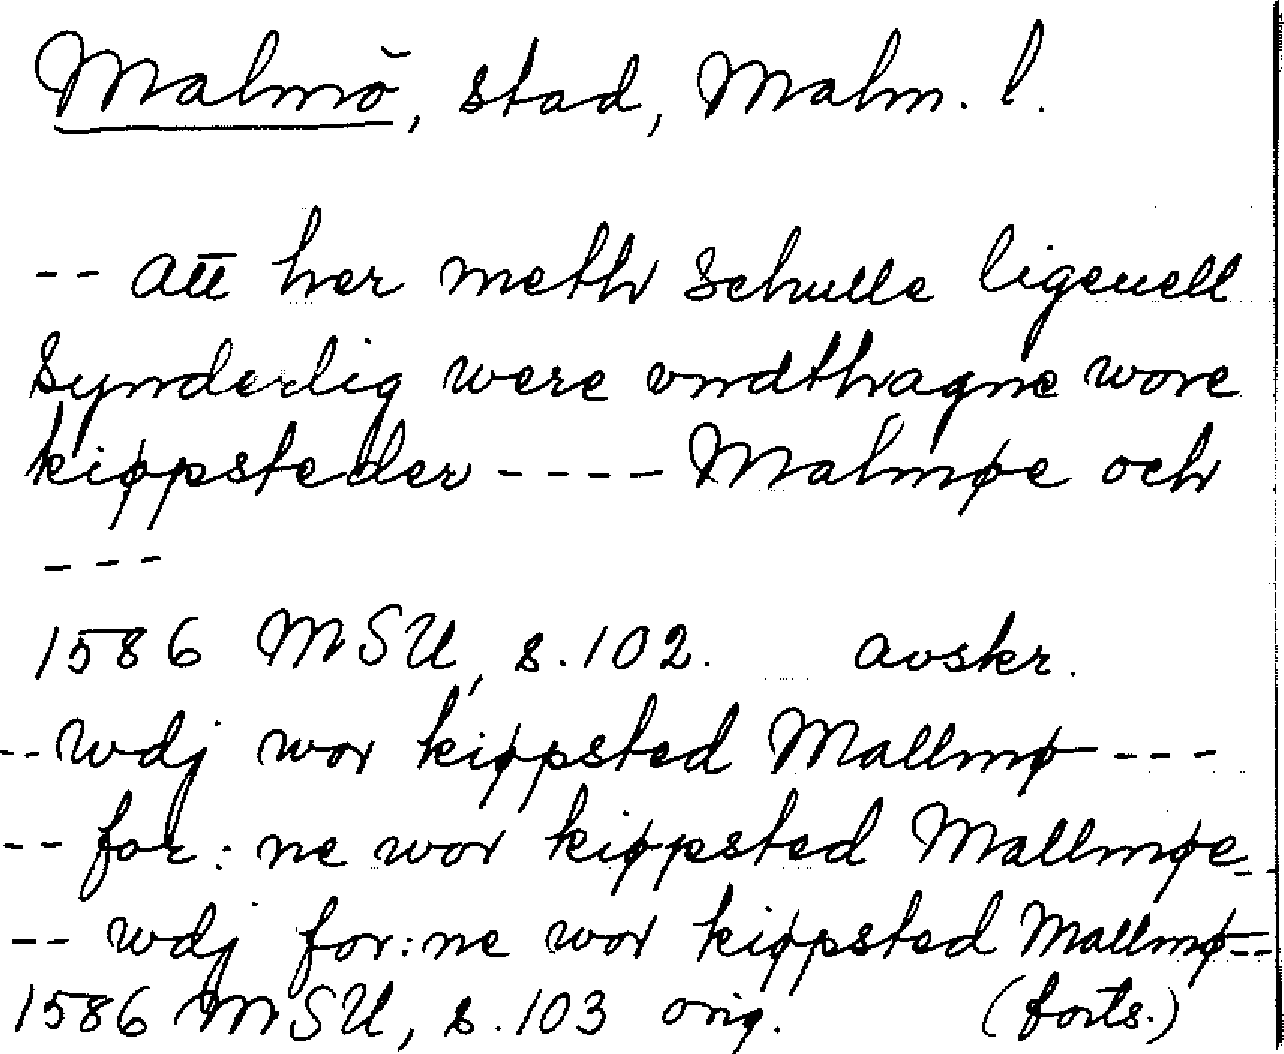 Malmö, stad, Malm. l.
-- att her meth schulle ligeuell
synderlig were vndthagne wore
kiøpsteder ---- Malmøe och
---
1586 MSU, s. 102. avskr.
-- wdj wor kiøpsted Mallmø ---
-- for: ne wor kiøpsted Mallmøe --
-- wdj for: ne wor kiøpsted Mallmø --
1586 MSU, s. 103 orig. (forts.)